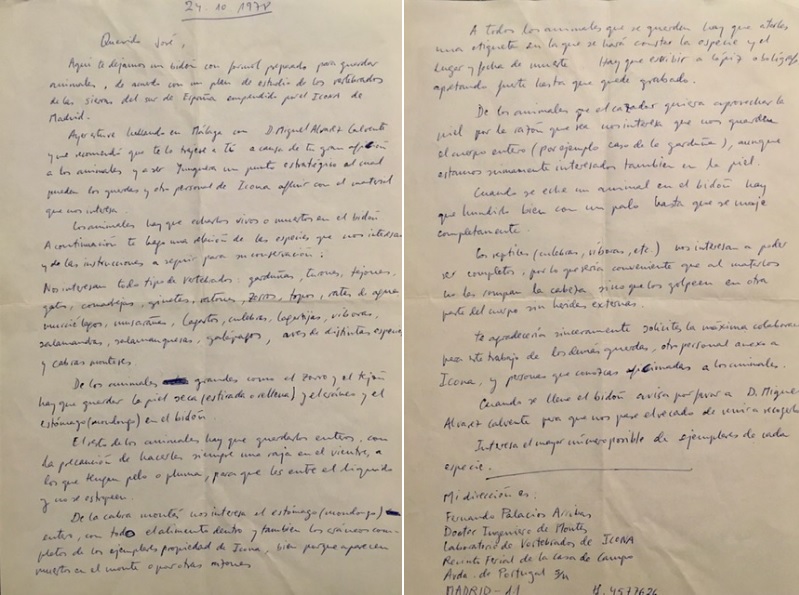 24.10.1978
Querido José,
Aqui te dejamos un bidón con formol preparado para guardar
animales, de acuerdo con un plan de estudio de los vertebrados
de las sierras del sur de España emprendido por el Icona de
Madrid.
Ayer estuve hablando en Málaga con D. Miguel Alvarez Calvente
y me recomendó que te lo trajese a tí a causa de tu gran afición
a los animales y a ser Yunquera un punto estratégico al cual
pueden los guardas y otro personal de Icona afluir con el material
que nos interesa.
Los animales hay que echarlos vivos o muertos en el bidón
A continuación te hago una relación de las especies que nos interesan
y de las instrucciones a seguir para su conservación:
Nos interesan todo tipo de vertebrados: garduñas, turones, tejones,
gatos, comadrejas, ginetas, ratones, zorros, topos, ratas de agua
murciélagos, musarañas, lagartos, culebras, lagartijas, víboras,
salamandras, salamanquesas, galápagos, aves de distintas especies
y cabras monteses.
De los animales grandes como el zorro y el tejón
hay que guardar la piel seca (estirada o rellena) y el cráneo y el
estómago (mondongo) en el bidón.
El resto de los animales hay que guardarlos enteros, con
la precaución de hacerles siempre una raja en el vientre, a
los que tengan pelo o pluma, para que les entre el líquido
y no se estropeen.
De la cabra montés nos interesa el estómago (mondongo)
entero, con todo el alimento dentro y también los cráneos com-
pletos de los ejemplares propiedad de Icona, bien porque aparecen
muertos en el monte o por otras razones
A todos los animales que se guarden hay que atarles
una etiqueta en la que se hará constar la especie y el
lugar y fecha de muerte. Hay que escribir a lápiz o bolígrafo
apretando fuerte hasta que quede grabado.
De los animales que el cazador quiera aprovechar la
piel por la razón que sea nos interesa que nos guarden
el cuerpo entero (por ejemplo caso de la garduña), aunque
estamos sumamente interesados también en la piel.
Cuando se eche un animal en el bidón hay
que hundirlo bien con un palo hasta que se moje
completamente.
Los reptiles (culebras, víboras, etc.) nos interesan a poder
ser completos, por lo que sería conveniente que al matarlos
no les rompan la cabeza sino que los golpeen en otra
parte del cuerpo sin heridas externas.
Te agradecería sinceramente solicites la máxima colaboración
para este trabajo de los demás guardas, otro personal anexo a
Icona, y personas que conozcas aficionadas a los animales.
Cuando se llene el bidón avisa por favor a D. Miguel
Alvarez Calvente para que nos pase el recado de venir a recogerlo
Interesa el mayor número posible de ejemplares de cada
especie.
Mi dirección es:
Fernando Palacios Arribas
Doctor Ingeniero de Montes
Laboratorio de Vertebrados de ICONA
Recinto Ferial de la Casa de Campo
Avda. de Portugal s/n
MADRID-11 4577626